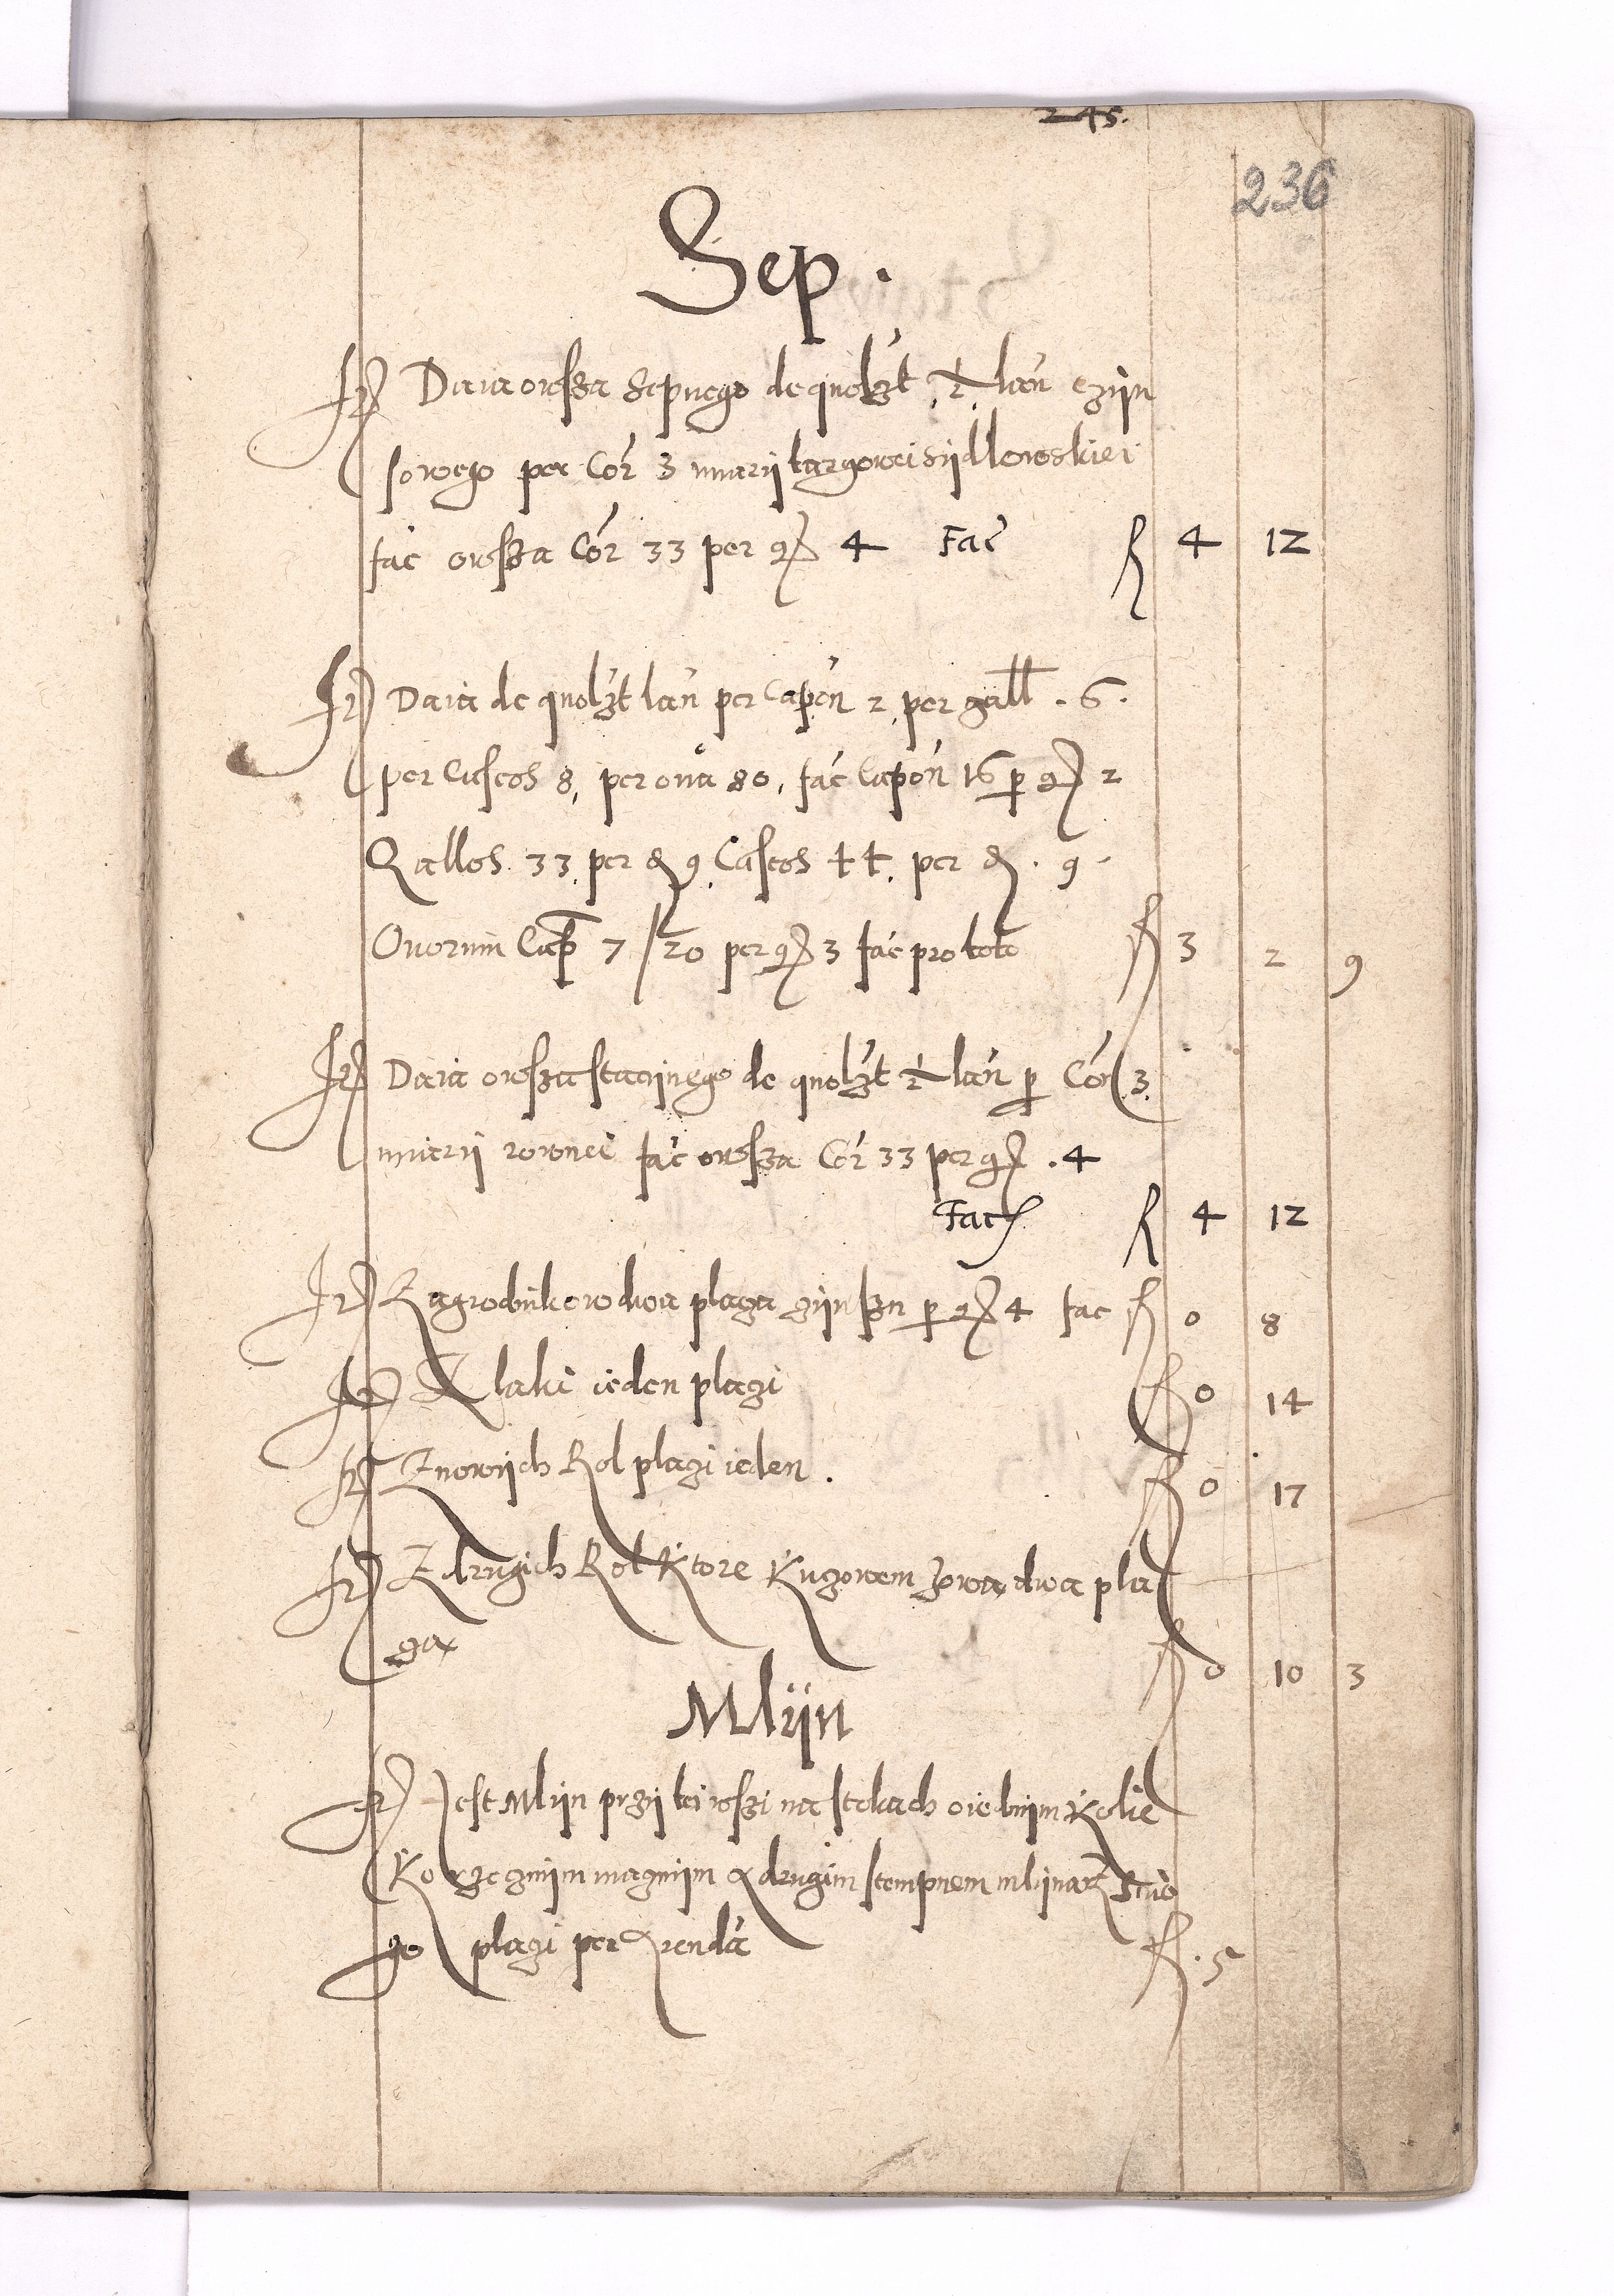 245.
236
Sep.
It Daia owsza Sepnego de quolzt ½ lan czijn
sowego per Cor 3 miarij targowei sijdlowskiei
fac owsza Cor 33 per gr 4 Fac f 4 12
It Daia de quolzt lan per Capon 2 per gall . 6 .
per Caseos 8, per oua 80, fac Capon 16 p gr 2
Gallos 33 per d 9 Caseos 44 per d . 9 .
Ouorum Cap 7 / 20 per gr 3 fac pro toto f 3 2 9
It Daia owsza stacijnego de quolzt ½ lan p Cor 3
miarij rownei fac owsza Cor 33 per gr . 4
Fac f 4 12
It Zagrodnikow dwa placza czijnszu p gr 4 fac f 0 8
It Z laki ieden placzi f 0 14
It Z nowijch Rol placzi ieden . f 0 17
It Z drugich Rol Ktore dwa pla
cza f 0 10 3
Mlijn
It Jest Mlijn przij tei wszi na stokach o iednijm Kolie
Korzecznijm macznijm a drugim stempnem mlijnarz
go placzi per Arenda f . 5